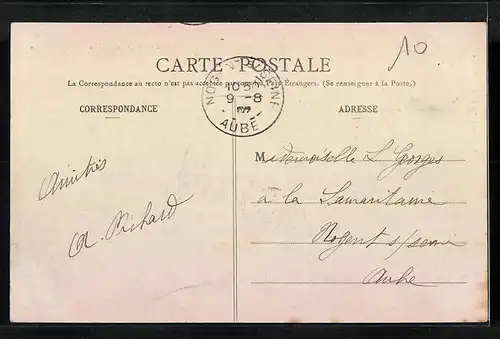 10
CARTE POSTALE
La Correspondance au recto n'est pas acceptée par tous les Pays Étrangers. (Se renseigner à la Poste.)
NOGENT-S-SEINE
10 5
9 -8
AUBE
CORRESPONDANCE
ADRESSE
Amitiés
A. Richard
Mademoiselle L Georges
a la Samaritaine
Nogent s/seine
Aube